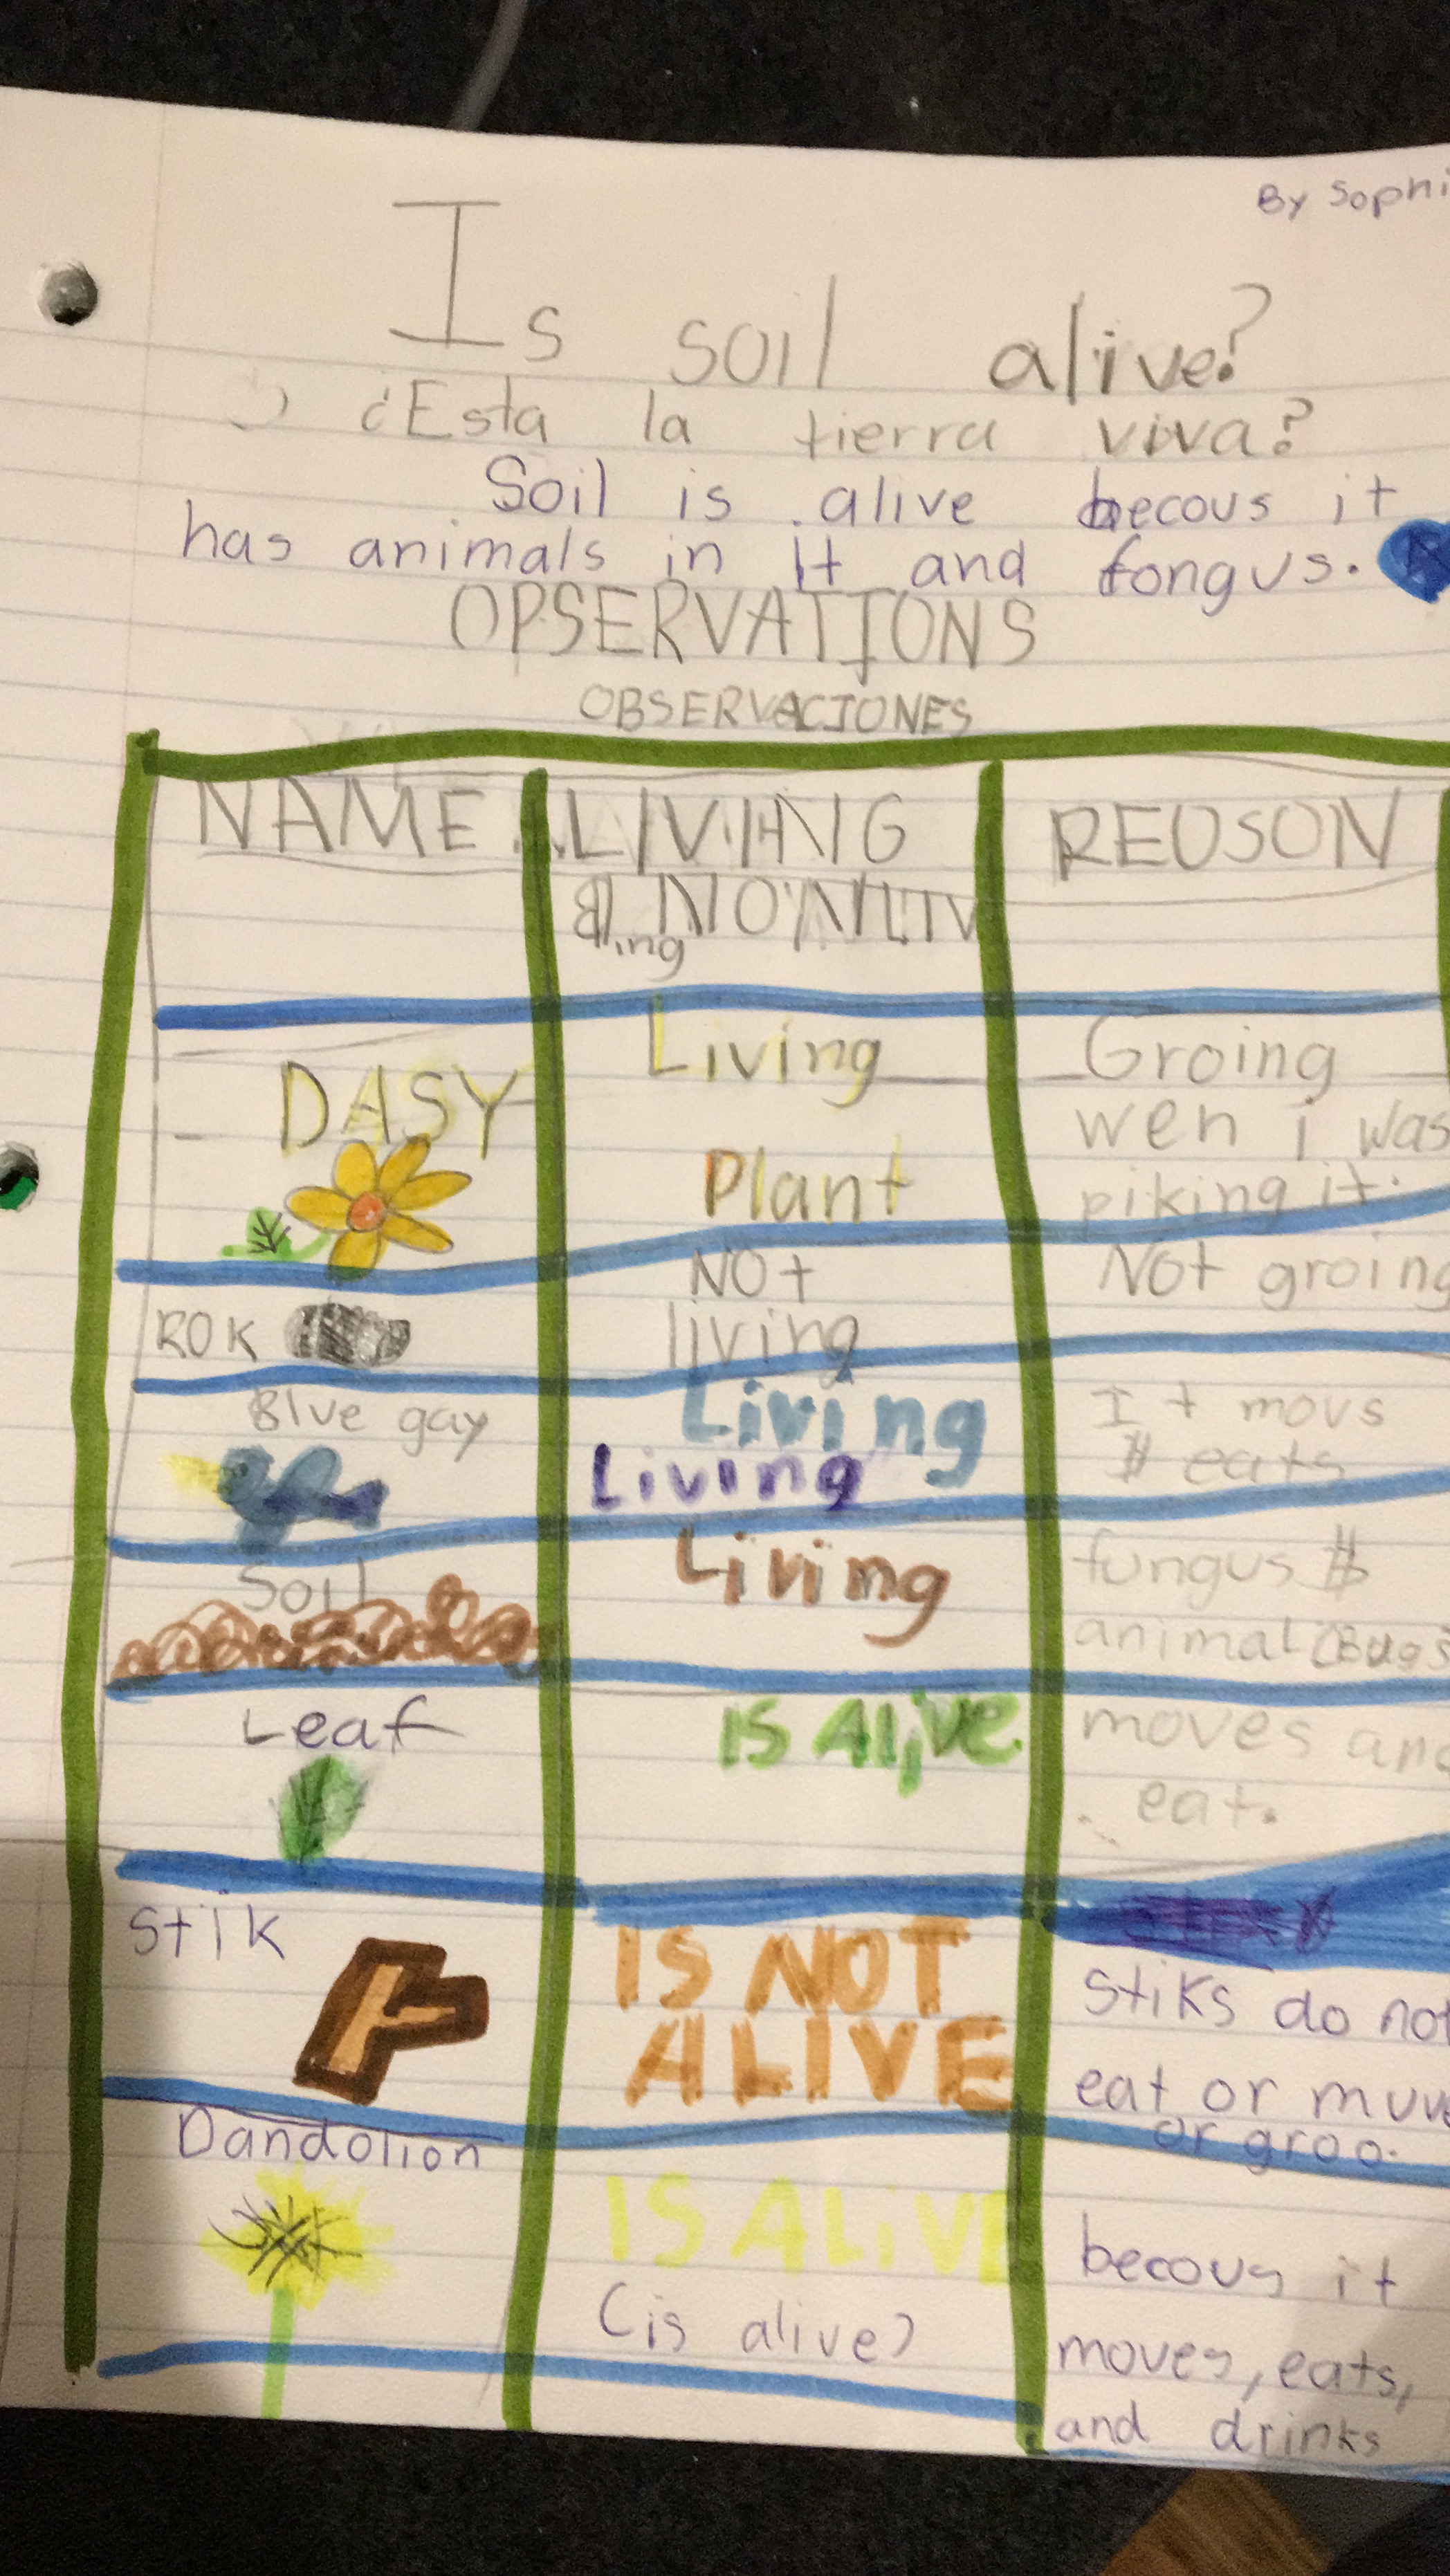 By Sophi
Is soil alive?
¿Esta la tierra viva?
Soil is alive becous it
has animals in It and fongus.
OPSERVATIONS
OBSERVACIONES
NAME
LIVING
& NONLIV
ing
REUSON
DASY
Living
Plant
Groing
wen i was
piking it.
ROK
NOt
living
Not groing
Blue gay
Living
Living
It movs
& eats
Soil
Living
fungus &
animal (Bugs
Leaf
IS Alive.
moves and
eat.
Stik
IS NOT
ALIVE
Stiks do not
eat or muve
or groo.
Dandolion
IS ALiVE
(is alive)
becous it
moves, eats,
and drinks